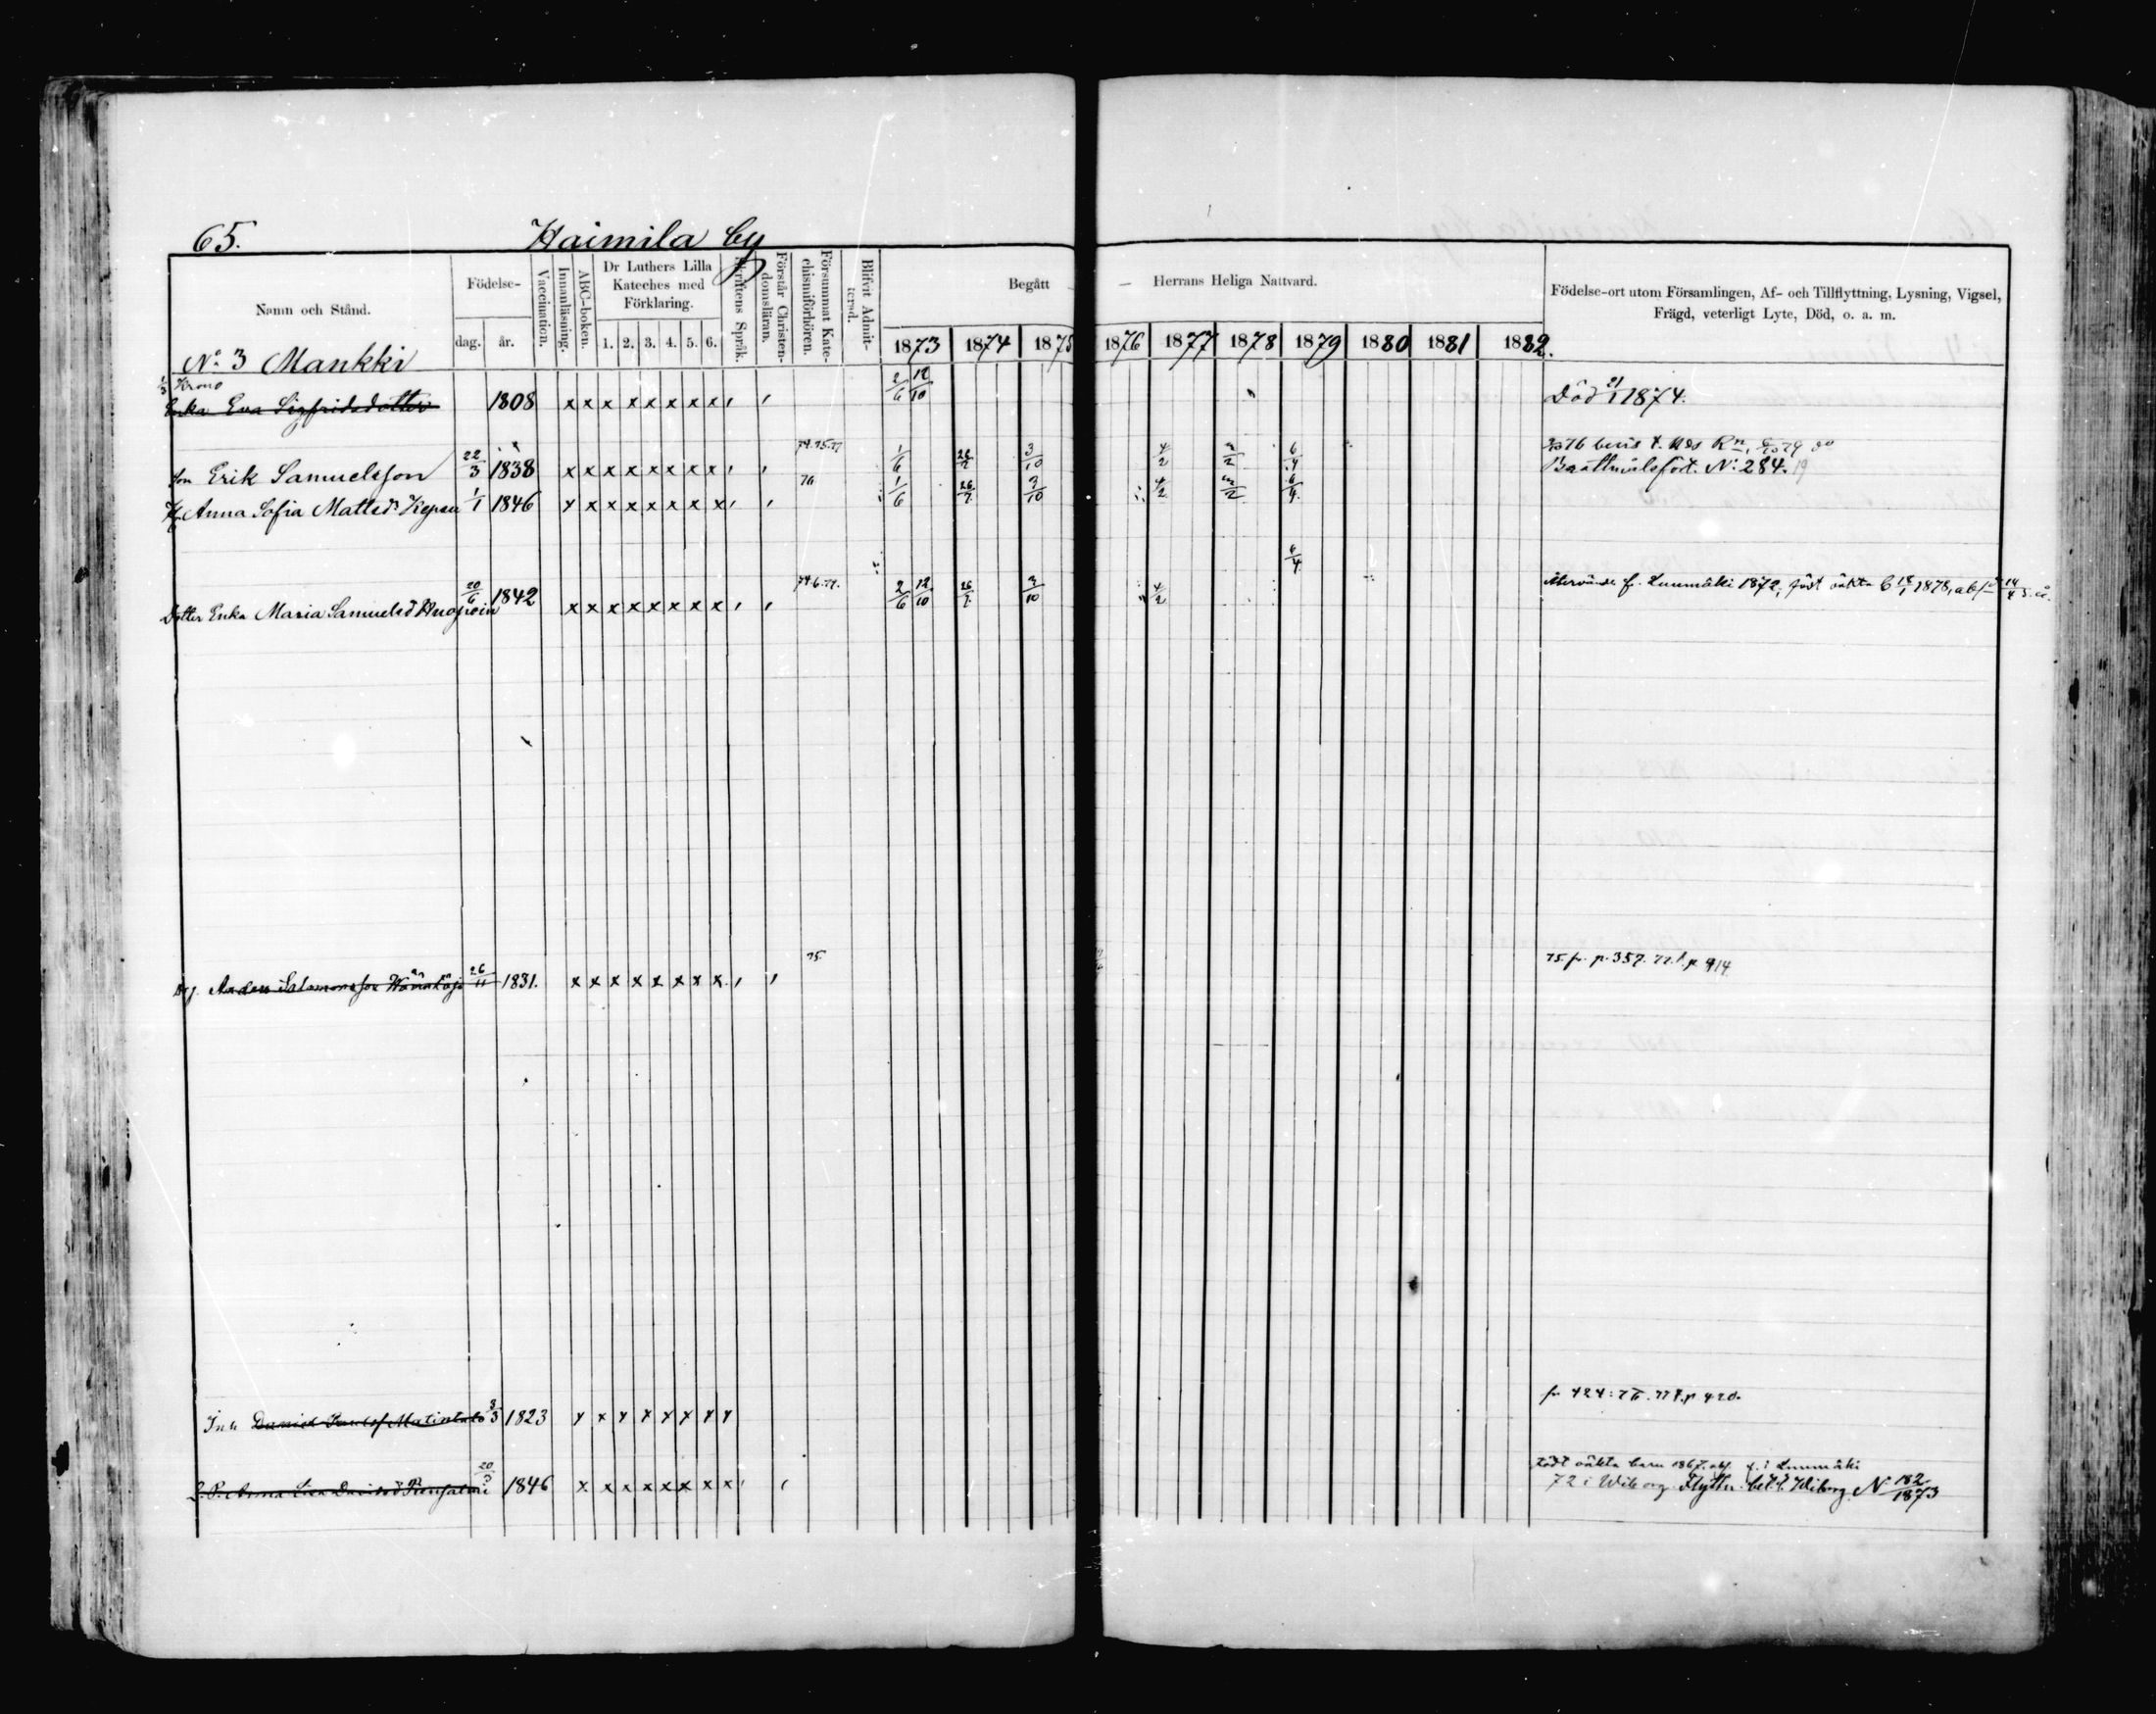 65. Haimila by
Namn och Stånd.
Födelse-
dag. år.
Vaccination.
Innanläsning.
ABC-boken.
Dr Luthers Lilla
Kateches med
Förklaring.
1. 2. 3. 4. 5. 6.
Skriftens Språk.
Förstår Christen-
domsläran.
Försummat Kate-
chismiförhören.
Blifvit Admit-
terad.
Begått Herrans Heliga Nattvard.
1873 1874 1875 1876 1877 1878 1879 1880 1881 1882.
Födelse-ort utom Församlingen, Af- och Tillflyttning, Lysning, Vigsel,
Frägd, veterligt Lyte, Död, o. a. m.
No 3 Mankki
1/3 Krono
Enka Eva Sigfridsdotter 1808 x x x x x x x x 2/6 12/10 Död 21/1 1874.
74.75.77
Son Erik Samuelsson 22/3 1838 x x x x x x x x 1/6 26/7 3/10 4/2 3/2 6/4 Brottmålsfört. No 284.
76
Anna Sofia Mattsdr 1/1 1846 x x x x x x x x 1/6 26/7 3/10 4/2 3/2 6/4
6/4
Dotter Enka Maria Samuelsd 20/6 1842 x x x x x x x x 2/6 12/10 26/7 3/10 4/2 fr. Luumäki 1872, födt oäkta
75
Anders Salomonsson 26/11 1831. x x x x x x x x 75 fr. p. 357. 77 t. p. 414
Daniel 3/3 1823 x x x x x x x x fr 424: 76. 77 t. p 420.
20/3 1846 x x x x x x x x
födt oäkta barn 1867. i Luumäki
72 i Wiborg. Flyttn. bet. t. Wiborg No 182/1873